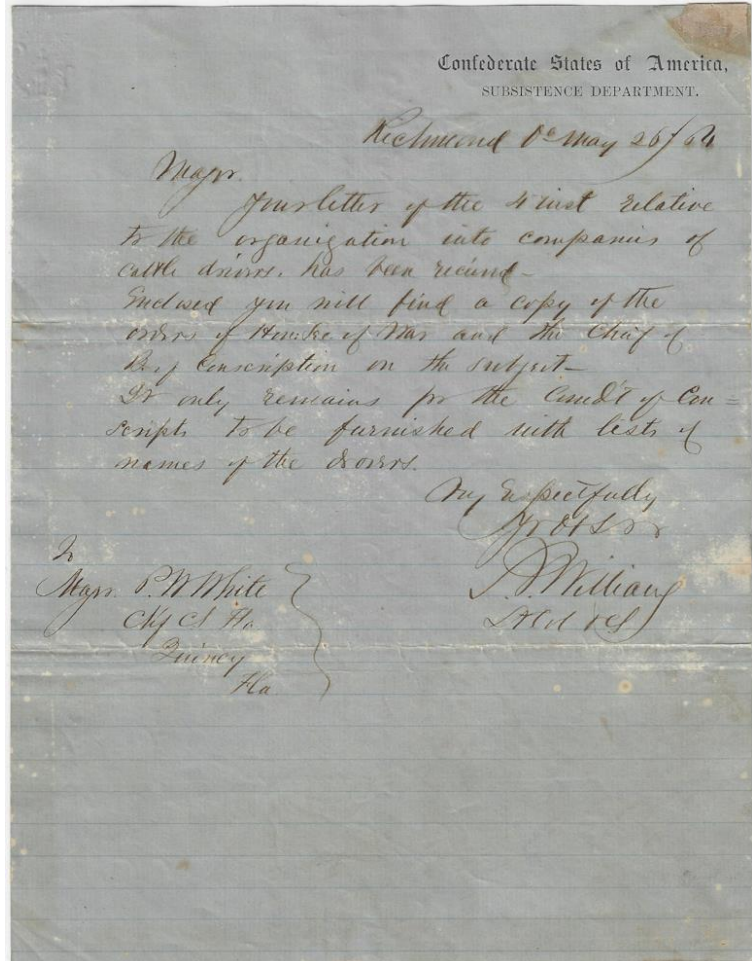 Confederate States of America,
SUBSISTENCE DEPARTMENT.
Richmond Va May 26/64
Major
Your letter of the 4 inst relative
to the organization into companies of
cattle drivers, has been recieved -
Enclosed you will find a copy of the
orders of Hon: Sec of War and the Chief of
B. of Conscription on the subject -
It only remains for the Comd't of Con =
scripts to be furnished with lists of
names of the drovers.
Very Respectfully
Yr Ob Svt
Williams
To
Major. P. W White
Chf CS Fla
Quincy
Fla